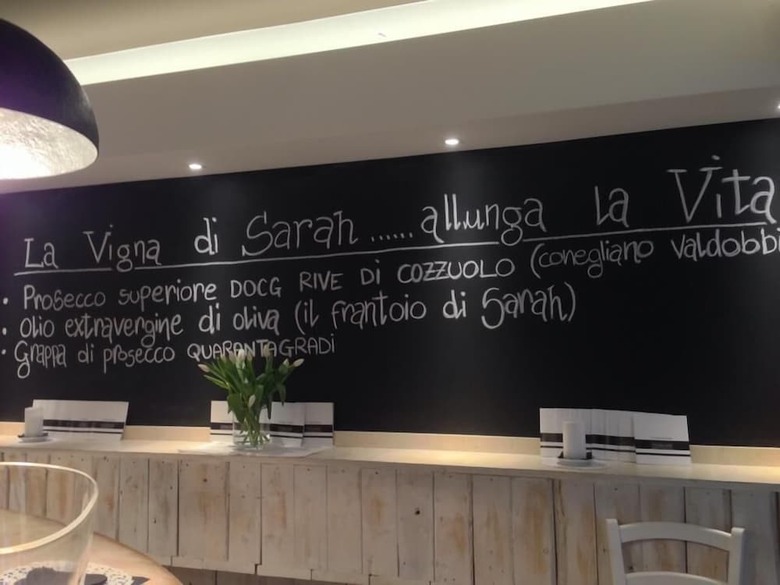 La Vigna di Sarah ...... allunga la Vita
• Prosecco superiore DOCG RIVE Di COZZUOLO (conegliano valdobbi
• olio extravergine di oliva (il frantoio di Sarah)
• Grappa di prosecco QUARANTAGRADi